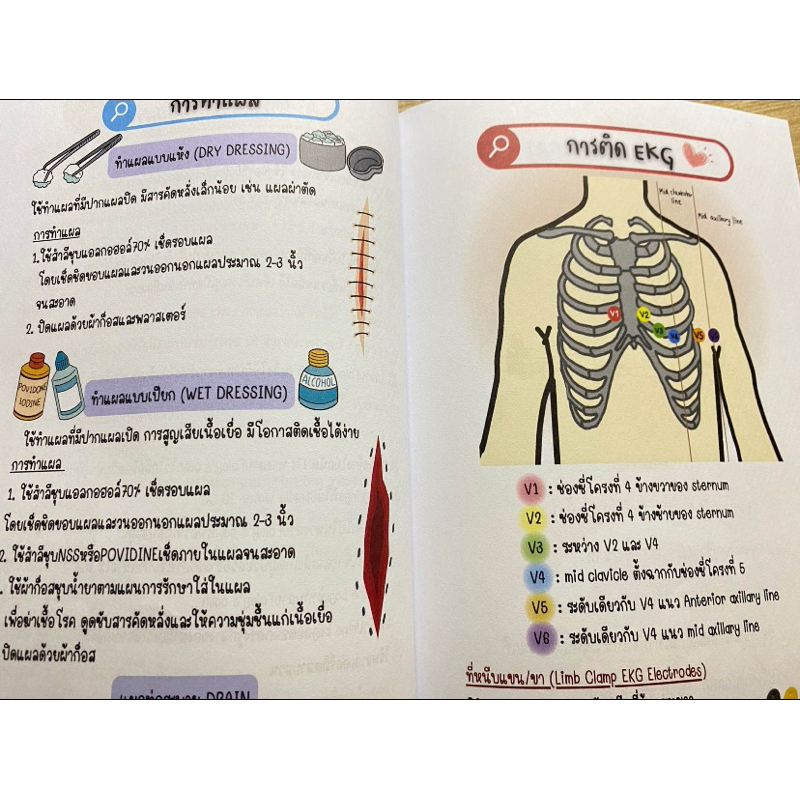 การทำแผล
ทำแผลแบบแห้ง (DRY DRESSING)
ใช้ทำแผลที่มีปากแผลปิด มีสารคัดหลั่งเล็กน้อย เช่น แผลผ่าตัด
การทำแผล
1.ใช้สำลีชุบแอลกอฮอล์70% เช็ดรอบแผล
โดยเช็ดชิดขอบแผลและวนออกนอกแผลประมาณ 2-3 นิ้ว
จนสะอาด
2. ปิดแผลด้วยผ้าก็อสและพลาสเตอร์
POVIDONE
IODINE
ALCOHOL
ทำแผลแบบเปียก (WET DRESSING)
ใช้ทำแผลที่มีปากแผลเปิด การสูญเสียเนื้อเยื่อ มีโอกาสติดเชื้อได้ง่าย
การทำแผล
1. ใช้สำลีชุบแอลกอฮอล์70% เช็ดรอบแผล
โดยเช็ดชิดขอบแผลและวนออกนอกแผลประมาณ 2-3 นิ้ว
2. ใช้สำลีชุบNSSหรือPOVIDINEเช็ดภายในแผลจนสะอาด
ใช้ผ้าก็อสชุบน้ำยาตามแผนการรักษาใส่ในแผล
เพื่อฆ่าเชื้อโรค ดูดซับสารคัดหลั่งและให้ความชุ่มชื้นแก่เนื้อเยื่อ
ปิดแผลด้วยผ้าก็อส
DRAIN
การติด EKG
Mid clavicular
line
Mid axillary line
V1
V2
V3
V4
V5
V1 : ช่องซี่โครงที่ 4 ข้างขวาของ sternum
V2 : ช่องซี่โครงที่ 4 ข้างซ้ายของ sternum
V3 : ระหว่าง V2 และ V4
V4 : mid clavicle ตั้งฉากกับช่องซี่โครงที่ 5
V5 : ระดับเดียวกับ V4 แนว Anterior axillary line
V6 : ระดับเดียวกับ V4 แนว mid axillary line
ที่หนีบแขน/ขา (Limb Clamp EKG Electrodes)